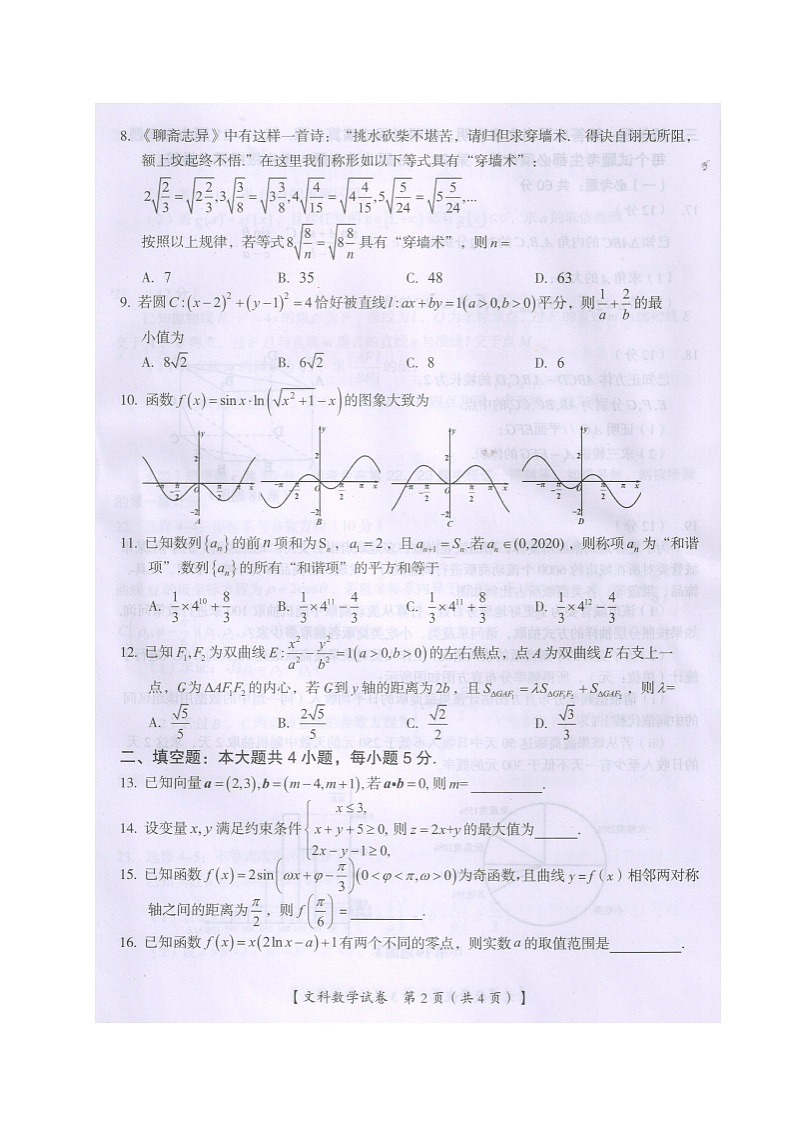 8.《聊斋志异》中有这样一首诗：“挑水砍柴不堪苦，请归但求穿墙术. 得诀自诩无所阻，
额上坟起终不悟.”在这里我们称形如以下等式具有“穿墙术”：
2√(2/3) = √(2 2/3), 3√(3/8) = √(3 3/8), 4√(4/15) = √(4 4/15), 5√(5/24) = √(5 5/24),...
按照以上规律，若等式 8√(8/n) = √(8 8/n) 具有“穿墙术”，则 n =
A. 7 B. 35 C. 48 D. 63
9. 若圆 C:(x−2)²+(y−1)²=4 恰好被直线 l:ax+by=1(a>0,b>0) 平分，则 1/a + 2/b 的最
小值为
A. 8√2 B. 6√2 C. 8 D. 6
10. 函数 f(x)=sin x·ln(√(x²+1)−x) 的图象大致为
A B C D
11. 已知数列{aₙ}的前 n 项和为 Sₙ，a₁=2，且 aₙ₊₁=Sₙ.若 aₙ∈(0,2020)，则称项 aₙ 为“和谐
项”.数列{aₙ}的所有“和谐项”的平方和等于
A. 1/3×4¹⁰+8/3 B. 1/3×4¹¹−4/3 C. 1/3×4¹¹+8/3 D. 1/3×4¹²−4/3
12. 已知 F₁,F₂ 为双曲线 E: x²/a² − y²/b² = 1(a>0,b>0) 的左右焦点，点 A 为双曲线 E 右支上一
点，G 为 ΔAF₁F₂ 的内心，若 G 到 y 轴的距离为 2b，且 S_ΔGAF₁=λS_ΔGF₁F₂+S_ΔGAF₂，则 λ=
A. √5/5 B. 2√5/5 C. √2/2 D. √3/3
二、填空题：本大题共 4 小题，每小题 5 分.
13. 已知向量 a=(2,3),b=(m−4,m+1),若 a•b=0,则 m=________.
14. 设变量 x,y 满足约束条件 { x≤3, x+y+5≥0, 2x−y−1≥0, 则 z=2x+y 的最大值为_____.
15. 已知函数 f(x)=2sin(ωx+φ−π/3)(0<φ<π,ω>0)为奇函数,且曲线 y=f（x）相邻两对称
轴之间的距离为 π/2，则 f(π/6)=________.
16. 已知函数 f(x)=x(2ln x−a)+1 有两个不同的零点，则实数 a 的取值范围是________.
【文科数学试卷 第 2 页（共 4 页）】